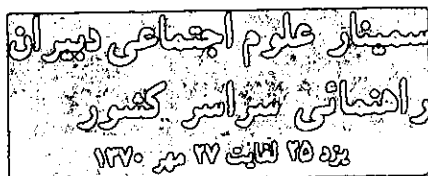 سمینار علوم اجتماعی دبیران
راهنمائی سراسر کشور
یزد ۲۵ لغایت ۲۷ مهر ۱۳۷۰